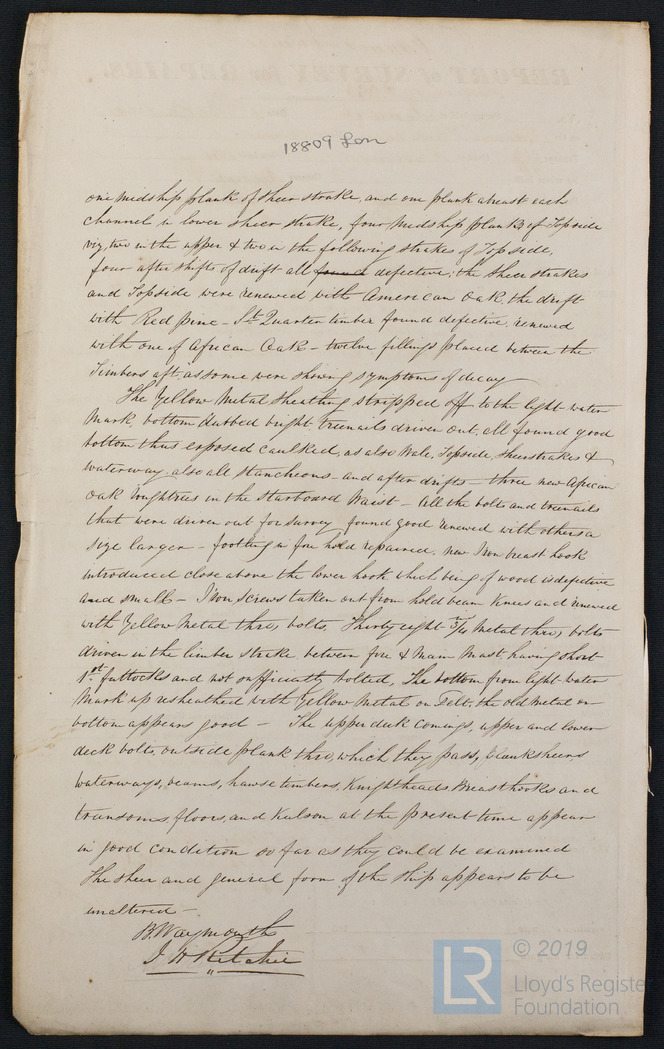 18809 Lon
one midship plank of sheer strake, and one plank abreast each
channel in lower sheer strake, four midship planks of Topside
viz, two in the upper & two in the following strakes of Topside,
four after shifts of drift all found defective; the sheerstrakes
and Topside were renewed with American Oak, the drift
with Red pine - St. Quarter timber found defective, renewed
with one of African Oak - twelve fillings placed between the
Timbers aft, as some were shewing symptoms of decay
The Yellow Metal Sheathing stripped off to the light water
Mark, bottom dubbed bright, treenails driven out, all found good
bottom thus exposed caulked, as also Wale, Topside, sheerstrakes &
waterway, also all stancheons - and after drifts - three new African
Oak roughtrees in the starboard Waist - All the bolts and treenails
that were driven out for survey, found good renewed with others a
size larger - footling in fore hold repaired, new Iron breast hook
introduced close above the lower hook which being of wood is defective
and small - Iron screws taken out from hold beam Knees and renewed
with Yellow Metal thro, bolts. Thirty eight 3/4 in Metal thro, bolts
driven in the limber strake between fore & Main Mast having short
1st futtocks and not sufficiently bolted, The bottom from light water
Mark up resheathed with Yellow Metal on Felt, the old metal on
bottom appears good - The upper deck comings, upper and lower
deck bolts, outside plank thro, which they pass, blanksheers
waterways, beams, hawse timbers, Knightheads Breasthooks and
transoms, floors, and Keelson at the present time appear
in good condition so far as they could be examined
The sheer and general form of the ship appears to be
unaltered -
B. Waymouth
J H Ritchie
LR © 2019
Lloyd's Register
Foundation